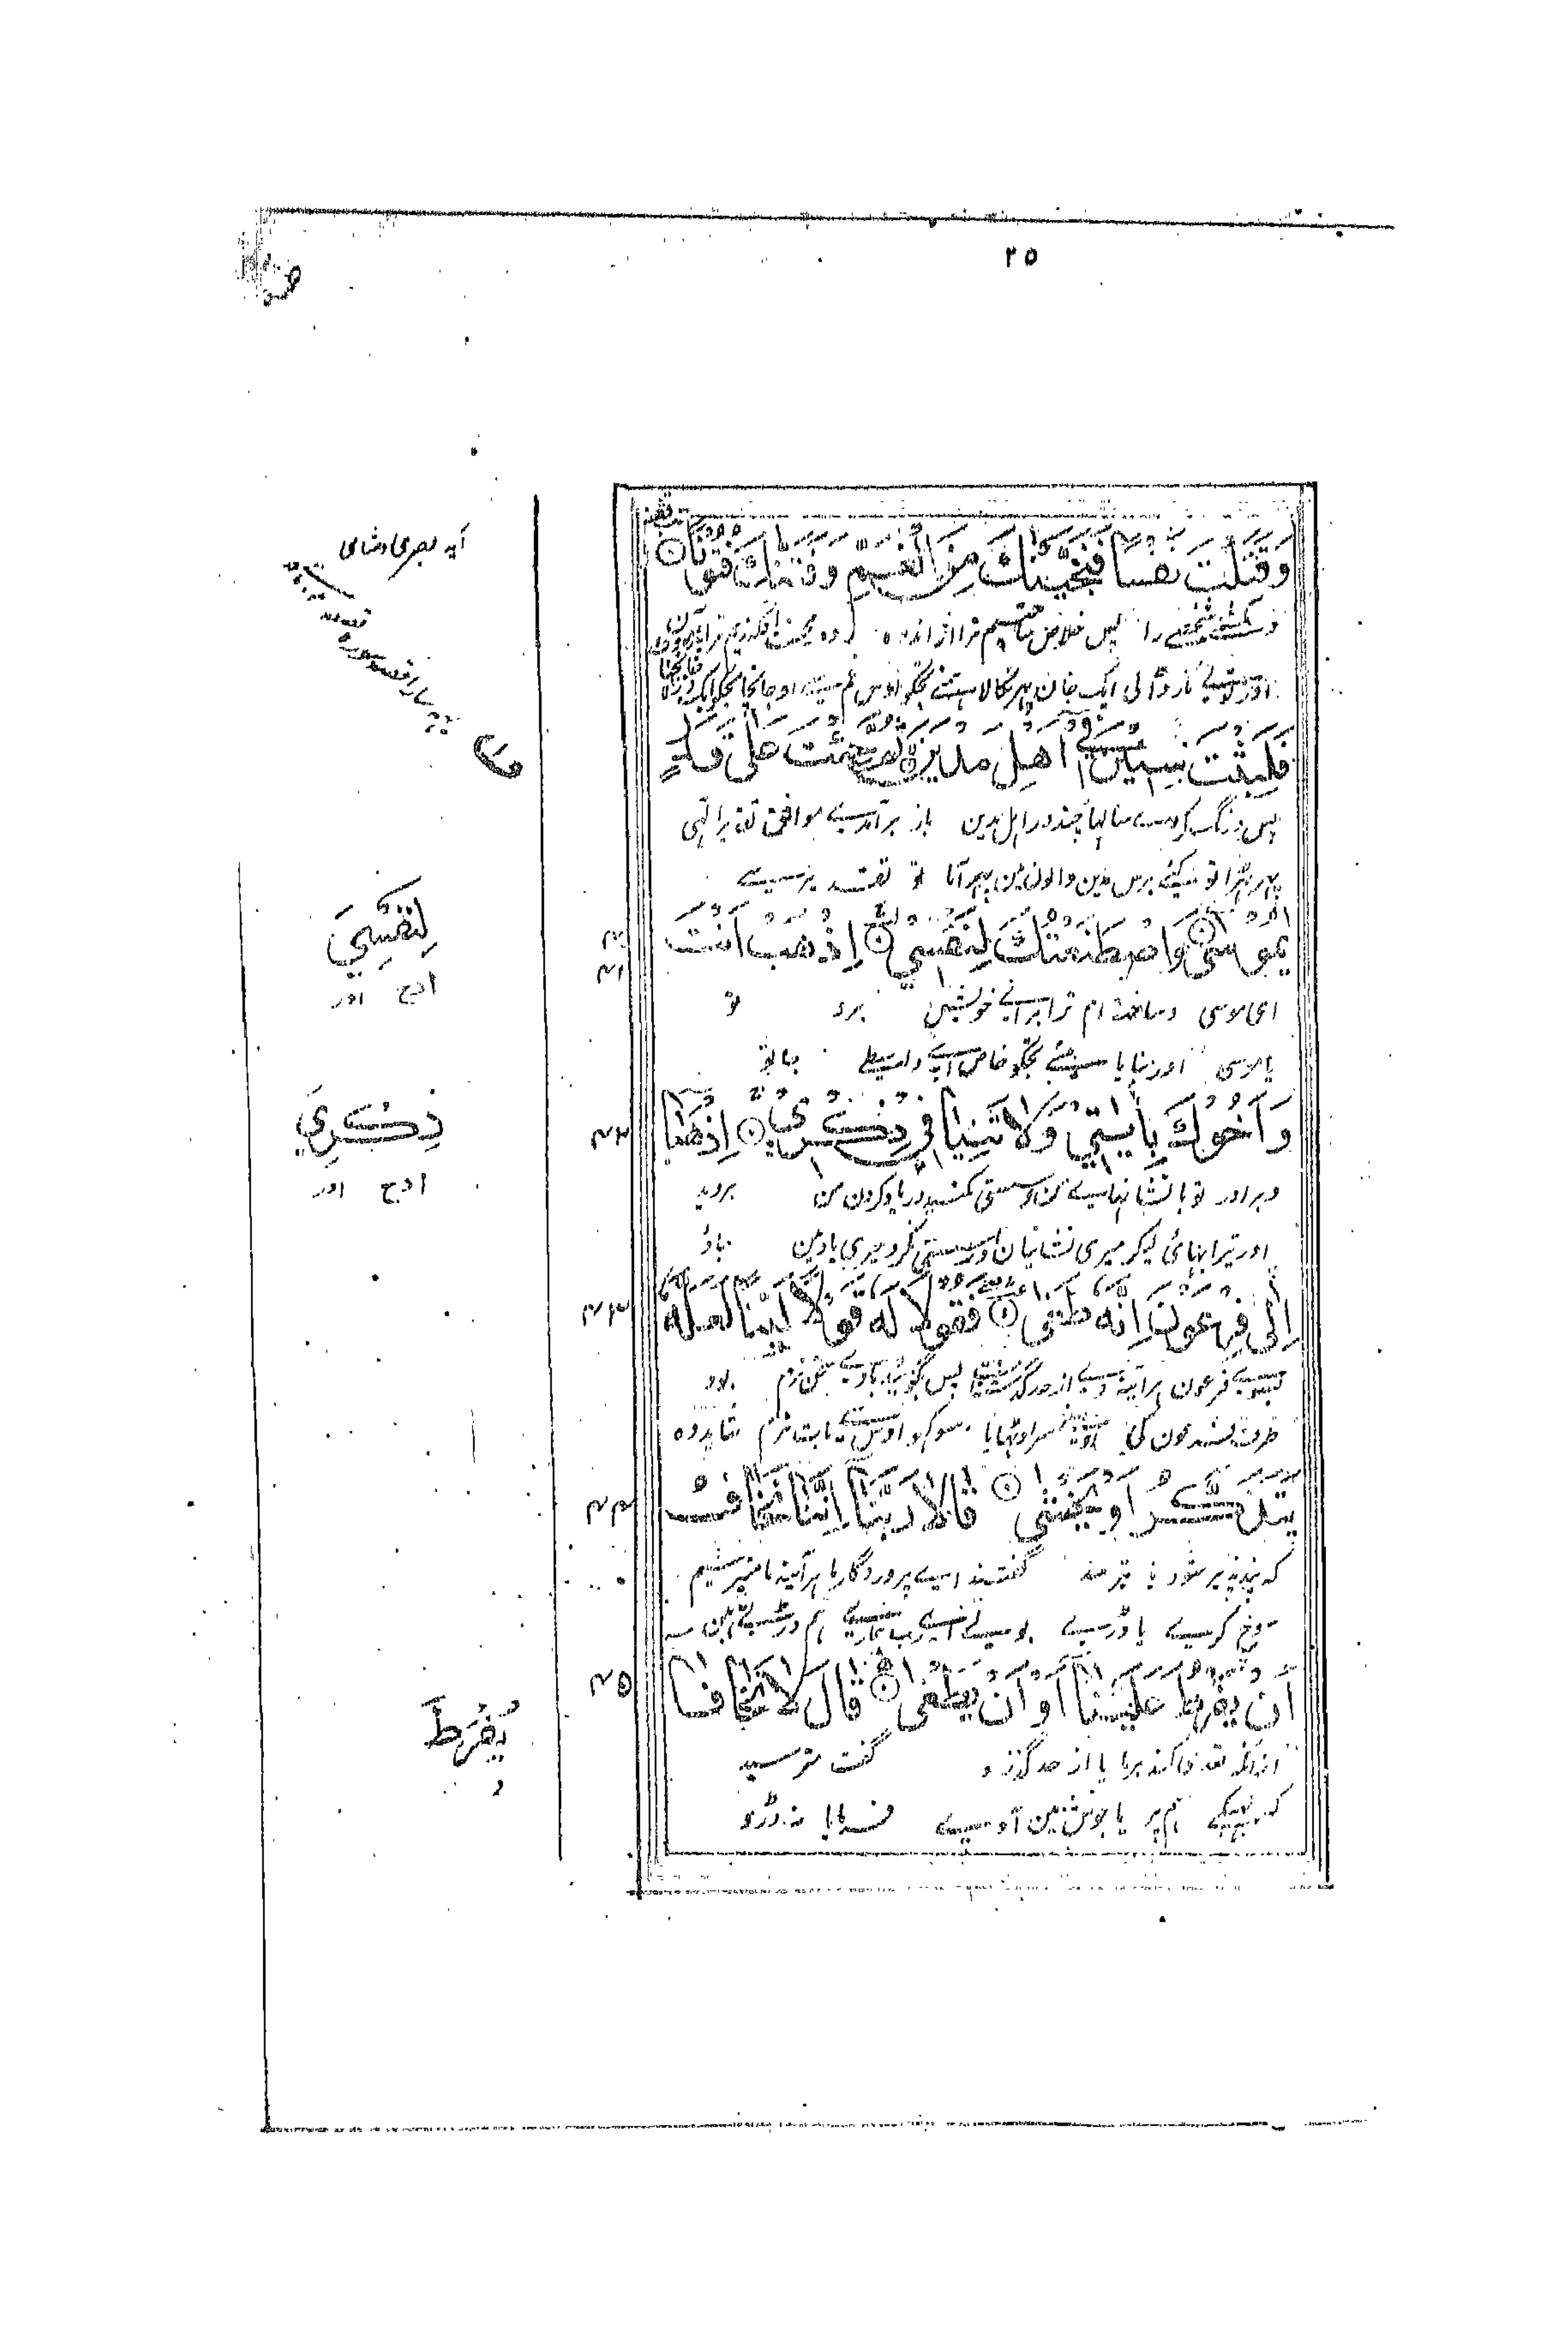 ۲۵
وَقَتَلْتَ نَفْسًا فَنَجَّيْنٰكَ مِنَ الْغَمِّ وَفَتَنّٰكَ فُتُوْنًا
و کشتی شخصے را پس خلاص ساختیم ترا از اندوہ
اور تونے مار ڈالی ایک جان پھر نکالا ہمنے تجکو اوس غم سے اور جانچا تجکو ایک ذرہ جانچنا
فَلَبِثْتَ سِنِيْنَ فِيْٓ اَهْلِ مَدْيَنَ ثُمَّ جِئْتَ عَلٰى قَدَرٍ
پس درنگ کردے سالہا چند در اہل مدین باز برآمدے موافق تقدیر الٰہی
پھر ٹہرا تو کئے برس مدین والون مین پھر آیا تو تقدیر سے
يّٰمُوْسٰى وَاصْطَنَعْتُكَ لِنَفْسِيْ اِذْهَبْ اَنْتَ
۴۱
ای موسی و ساختہ ام ترا برائے خویشتن برو تو
یا موسی اور بنایا مینے تجکو خاص اپنے واسطے جا تو
وَاَخُوْكَ بِاٰيٰتِيْ وَلَا تَنِيَا فِيْ ذِكْرِيْ اِذْهَبَآ
۴۲
و برادر تو با نشانہاے من و سستی مکنید در یاد کردن من بروید
اور تیرا بھائی لیکر میری نشانیان اور سستی نکرو میری یاد مین جاؤ
اِلٰى فِرْعَوْنَ اِنَّهٗ طَغٰى فَقُوْلَا لَهٗ قَوْلًا لَّيِّنًا لَّعَلَّهٗ
۴۳
بسوے فرعون ہرآئینہ وے از حد گذشتہ پس بگوئید باوے سخن نرم بود
طرف فرعون کی اوسنے سر اوٹھایا سو کہو اوس سے بات نرم شاید وہ
يَتَذَكَّرُ اَوْ يَخْشٰى قَالَا رَبَّنَآ اِنَّنَا نَخَافُ
۴۴
کہ پند پذیر شود یا بترسد گفتند اے پروردگار ما ہرآئینہ ما میترسیم
سوچ کرے یا ڈرے بولے اے رب ہمارے ہم ڈرتے ہین
اَنْ يَّفْرُطَ عَلَيْنَآ اَوْ اَنْ يَّطْغٰى قَالَ لَا تَخَافَآ
۴۵
ازانکہ تعدی کند برما یا از حد گذرد گفت مترسید
کہ بھبکے ہم پر یا جوش مین آوے فرمایا نہ ڈرو
آیہ بصری و شامی
لِنَفْسِيَ
ا د ح اور
ذِكْرِيَ
ا د ح اور
يُفْرَطَ